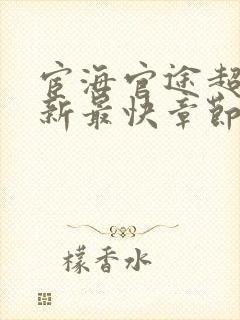 宦海官途超
新最快章節
檬香水